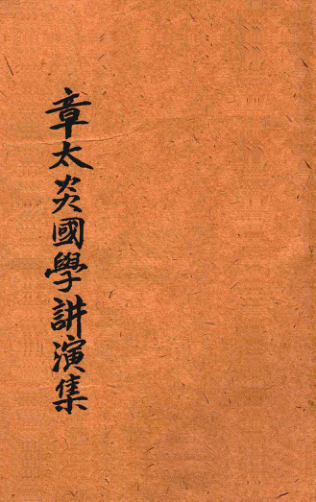 章太炎國學讲演集